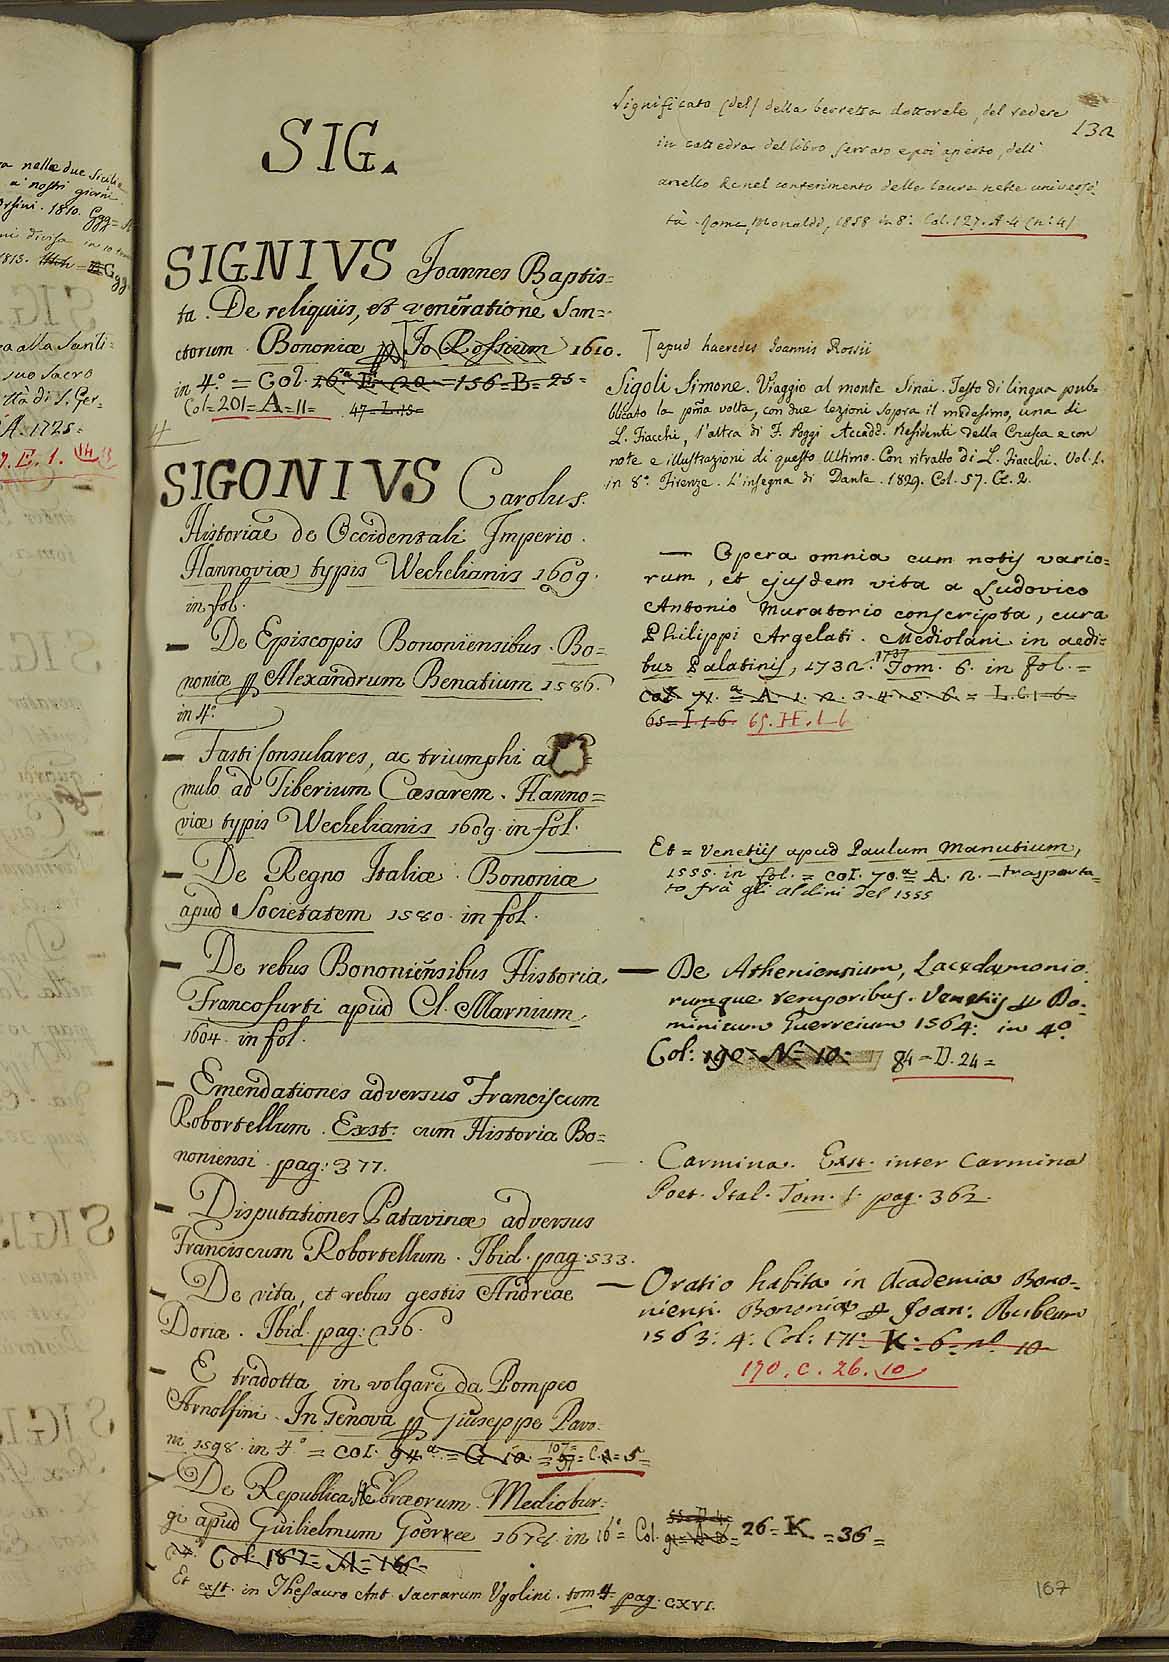 SIG.
SIGNIVS Joannes Baptis=
ta. De reliquiis, et veneratione San=
ctorum. Bononiæ Jo Rossium 1610.
in 4.° = Col.
Col=201=A=11= 47=L.15=
SIGONIVS Carolus.
Historiae de Occidentali Imperio.
Hannoviæ typis Wechelianis 1609.
in fol.
— De Episcopis Bononiensibus. Bo=
noniæ Alexandrum Benatium 1586.
in 4.°
— Fasti Consulares, ac triumphi a
mulo ad Tiberium Cæsarem. Hanno=
viæ typis Wechelianis 1609. in fol.
— De Regno Italiæ. Bononiæ
apud Societatem 1580. in fol.
— De rebus Bononiensibus Historia,
Francofurti apud Cl. Marnium,
1604. in fol.
— Emendationes adversus Franciscum
Robortellum. Exst. cum Historia Bo=
noniensi. pag: 377.
— Disputationes Patavinæ adversus
Franciscum Robortellum. Ibid. pag: 533.
— De vita, et rebus gestis Andreae
Doriæ. Ibid. pag: 216.
— E tradotta in volgare da Pompeo
Arnolfini. In Genova Giuseppe Pavo.
ni 1598. in 4.° = Col. 94.ª = G 10. = 5=
— De Republica Hebræorum. Miediobur=
gi apud Guilielmum Goeree 1678. in 16.° = Col. 26=K=36=
Col: 187= A=166=
Et exst. in Thesauro Ant. sacrarum Ugolini. tom 4. pag. CXVI.
Significato (del) della berretta dottorale, del sedere
132
in cattedra del libro serrato e poi aperto, dell'
anello &c nel conferimento delle lauree nelle universi
tà Roma, Monaldi, 1858 in 8.° Col. 127. A 4 (n: 4)
apud haeredes Joannis Rossii
Sigoli Simone. Viaggio al monte Sinai. Testo di lingua pub=
blicato la pma volta, con due lezioni sopra il medesimo, una di
L. Fiacchi, l'altra di F. Poggi Accadd. Residenti della Crusca e con
note e illustrazioni di questo ultimo. Con ritratto di L. Fiacchi. Vol. 1.
in 8.° Firenze. L'insegna di Dante. 1829. Col. 57. G. 2.
— Opera omnia cum notis vario=
rum, et ejusdem vita a Ludovico
Antonio Muratorio conscripta, cura
Philippi Argelati. Mediolani in aedi=
bus Palatinis, 1732. 1737 Tom. 6. in fol. =
Col. 71.ª = A 1. 2. 3. 4. 5. 6. = L. C. 1-6
65=I.1-6. 65. H. 1-6
Et = Venetiis apud Paulum Manutium,
1555. in fol. = Col. 70.ª = A. 2. — trasporta=
to frà gli aldini del 1555
— De Atheniensium, Lacedæmonio
rumque temporibus. Venetiis Do=
minicum Guerreium 1564: in 4.°
Col: 190= N= 10= 84=D.24=
— Carmina. Exst. inter Carmina
Poet. Ital. Tom. 1. pag. 362
— Oratio habita in Academia Bono=
niensi. Bononiæ Joan: Rubeum
1563: 4: Col: 171= K: 6= n.° 10
190. C. 26. 10
167